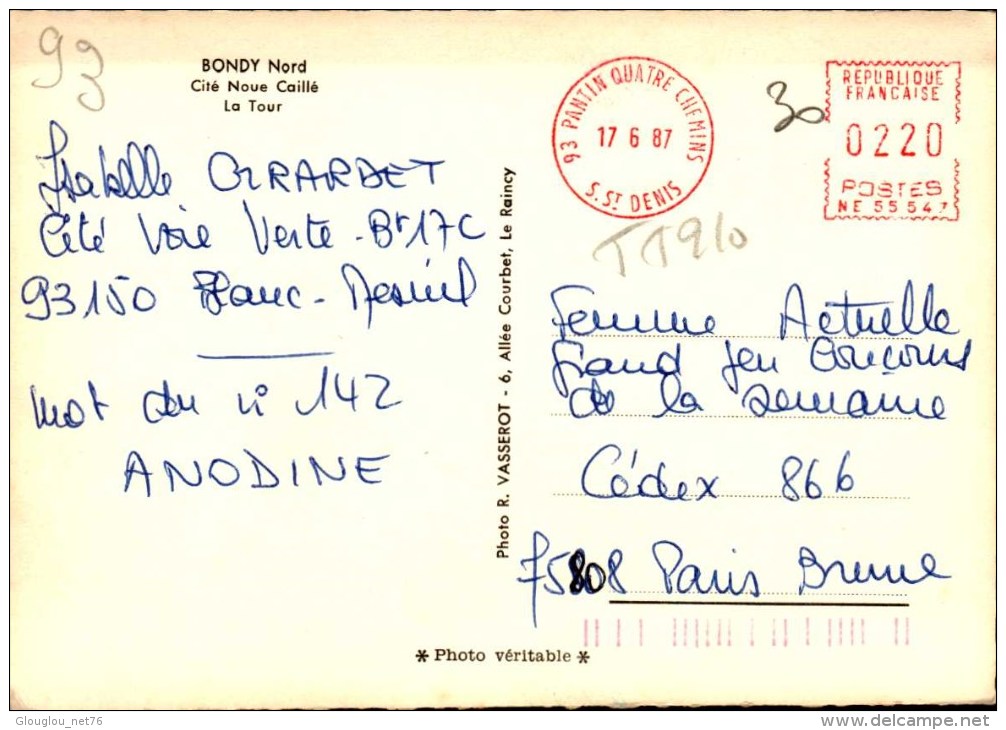 93
BONDY Nord
Cité Noue Caillé
La Tour
Isabelle GIRARDET
Cité Voie Verte - Bt 17C
93150 Blanc-Mesnil
mot du n° 142
ANODINE
Photo R. VASSEROT - 6, Allée Courbet, Le Raincy
93 PANTIN QUATRE CHEMINS
17 6 87
S. ST DENIS
30
REPUBLIQUE
FRANCAISE
0220
POSTES
NE 55547
TT910
Femme Actuelle
Grand jeu Concours
de la semaine
Cédex 866
75808 Paris Brune
* Photo véritable *
Glouglou_net76
delcampe.net